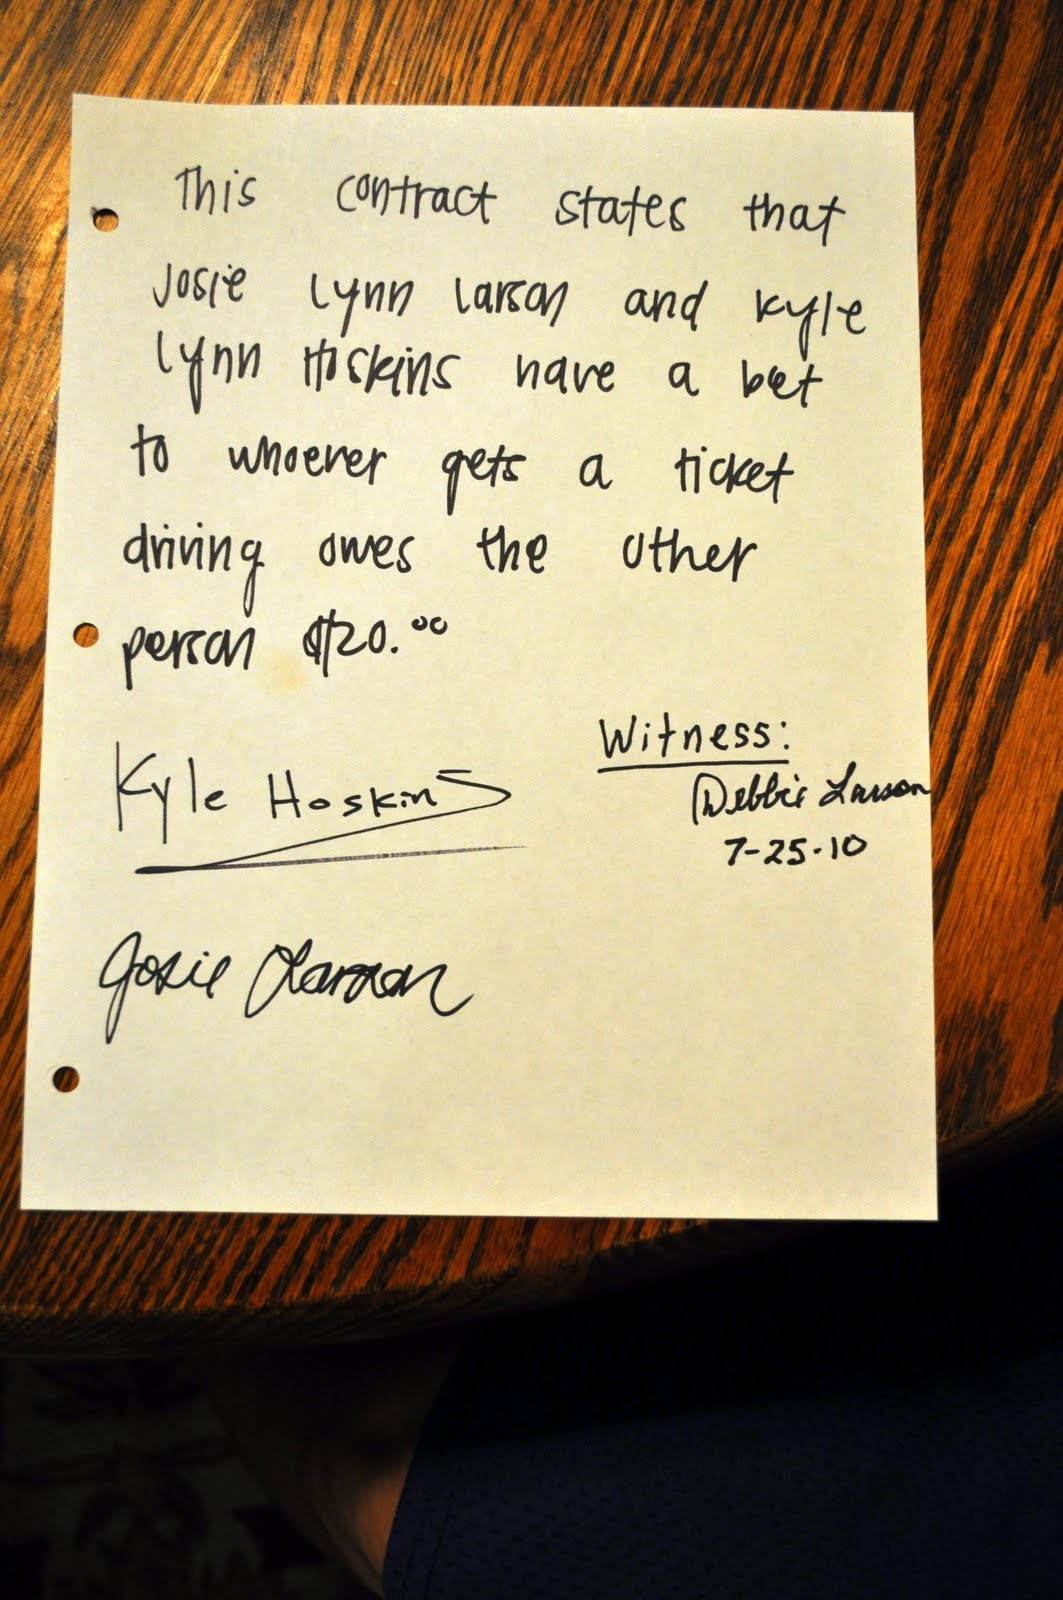 This contract states that
Josie Lynn Larson and Kyle
Lynn Hoskins have a bet
to whoever gets a ticket
driving owes the other
person $20.00
Witness:
Kyle Hoskins
Debbie Larson
7-25-10
Josie Larson